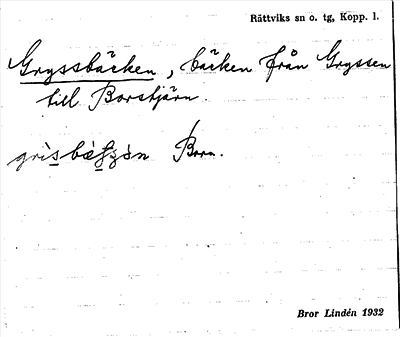 Rättviks sn o. tg, Kopp. l.
Gryssbäcken, bäcken från Gryssen
till Borstjärn.
Bror Lindén 1932